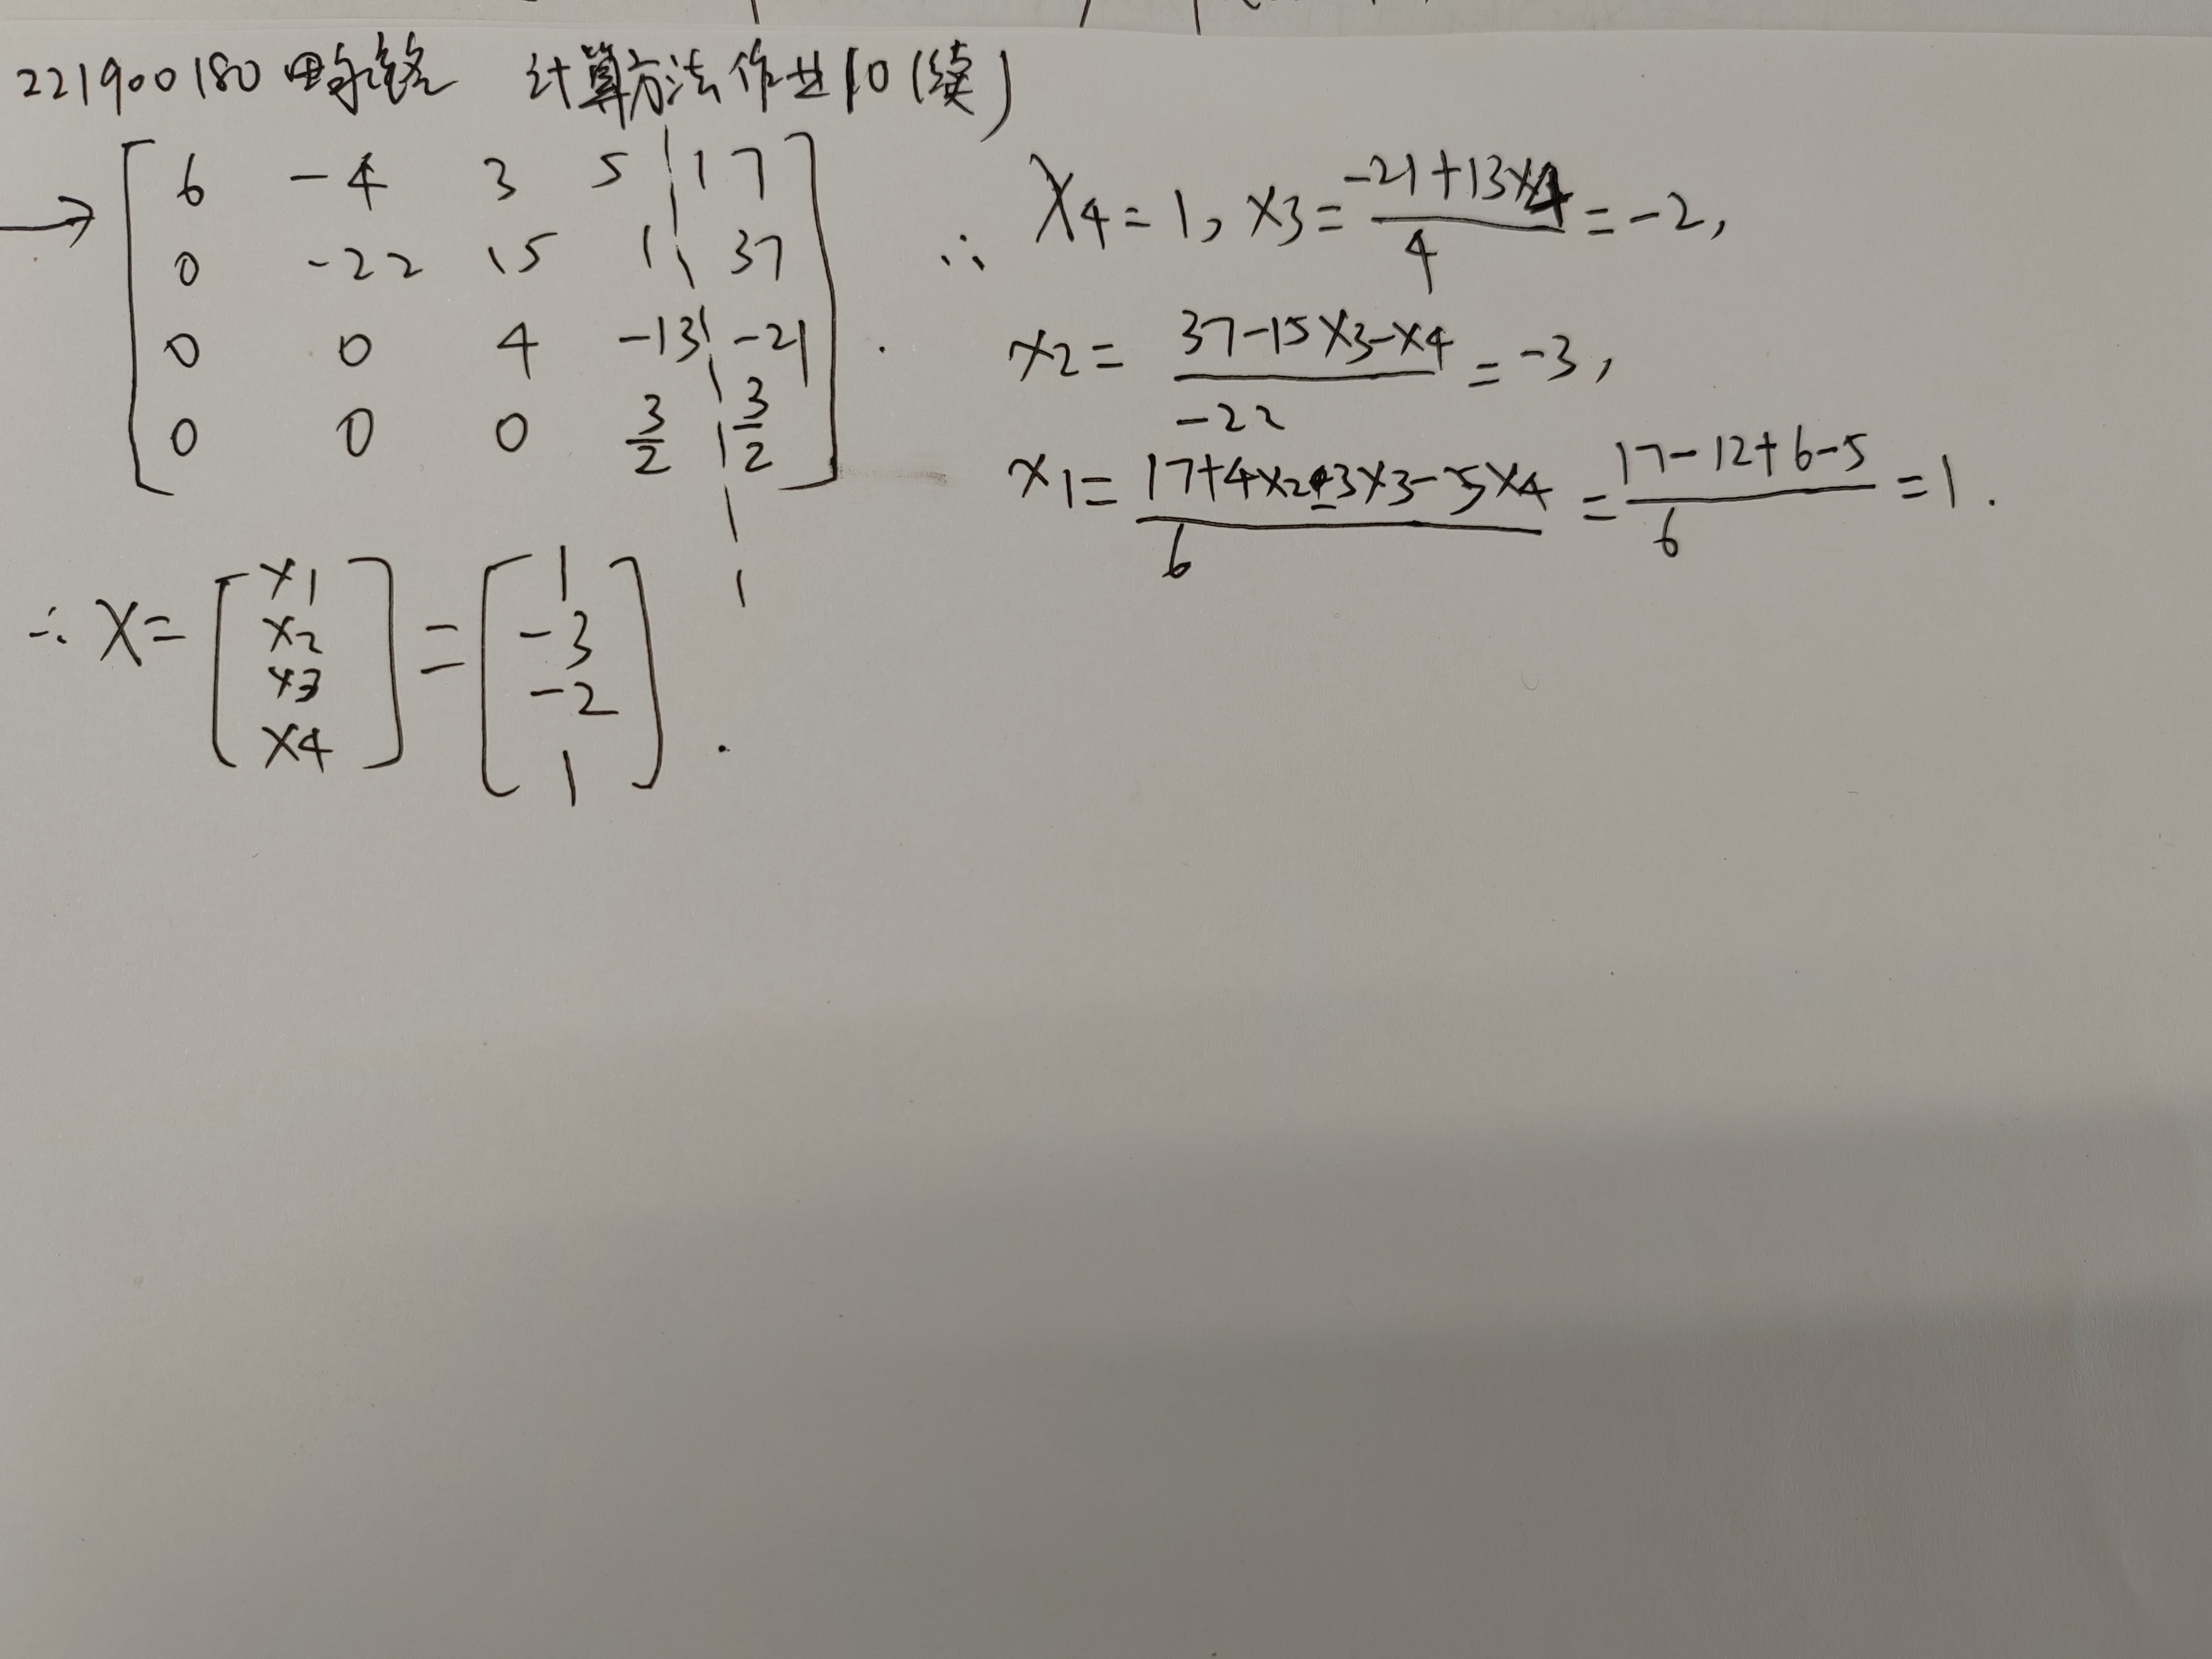 221900180 田永铭 计算方法作业10(续)
→ [ 6 -4 3 5 | 17 ]
[ 0 -22 15 1 | 37 ]
[ 0 0 4 -13 | -21 ] .
[ 0 0 0 3/2 | 3/2 ]
∴ x4=1, x3=(-21+13x4)/4=-2,
x2=(37-15x3-x4)/-22=-3,
x1=(17+4x2-3x3-5x4)/6=(17-12+6-5)/6=1.
∴ X=[x1 x2 x3 x4]=[1 -3 -2 1].